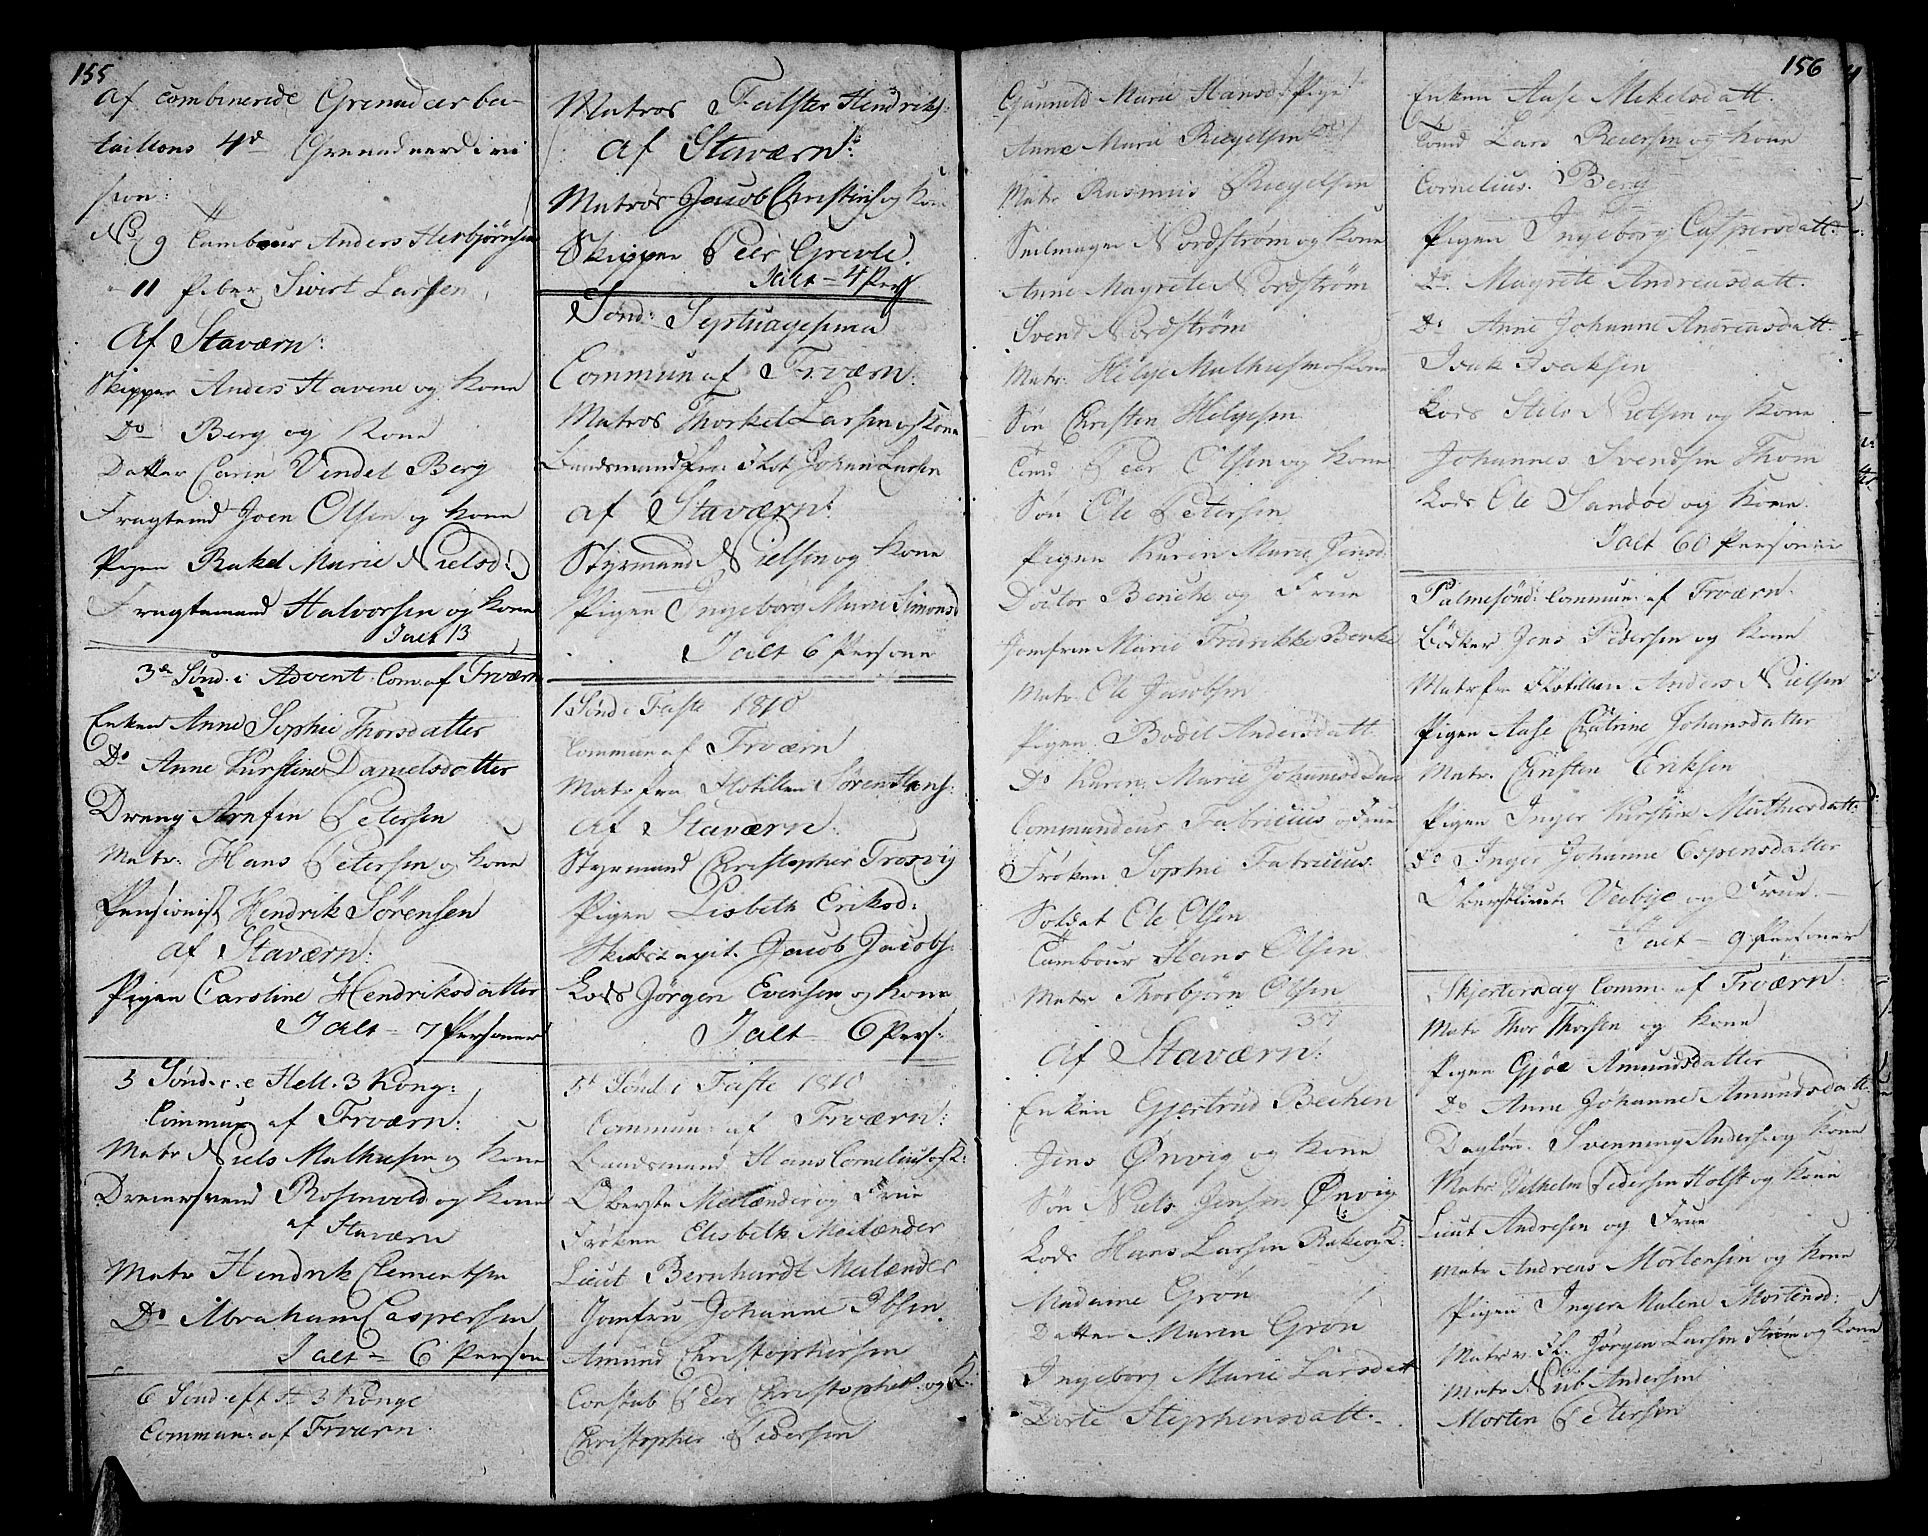 155
Af combinerede Grenadeer ba-
taillons 4de Grenadeerdivi
sion:
No 9 Tambour Anders Herbjørnsen
" 11 Piber Sivert Larsen
Af Staværn:
Skipper Anders Havene og Kone
Do Berg og Kone
Datter Carin Vendel Berg
Fragtemd Joen Olsen og Kone
Pigen Rakel Marie Nielsd:
Fragtemand Halvorsen og Kone
Ialt 13
3de Sønd. i Advent. Com: af Frværn
Enken Anne Sophie Thorsdatter
Do Anne Kirstine Danielsdatter
Dreng Arnfin Petersen
Matr. Hans Petersen og Kone
Pensionist Hendrik Sørensen
af Staværn:
Pigen Caroline Hendriksdatter
Ialt - 7 Personer
5 Sønd. e. Hell. 3 Kong:
Commun af Frværn:
Matr Niels Mathiesen og Kone
Rosenvold og Kone
af Staværn
Matr Hendrik Clementsen
Do Abraham Caspersen
Ialt - 6 Person
6 Sønd eft H 3 Konge
Commun: af Frværn.
Matros Falster Hendriks:
af Staværn:
Matros Jacob Christens og Kone
Skipper Peer Grevle.
Ialt - 4 Pers
Sønd: Septuagesima
Commun af Frværn:
Matros Thorkel Larsen og Kone
Baadsmand fra Flot Johan Larsen
af Staværn:
Styrmand Nielsen og Kone
Pigen Ingeborg Marie Simonsd
Ialt 6 Persone
1 Sønd i Faste 1810
Commun af Frværn
Matr fra Flotillen Sören Hans:
Af Staværn:
Styrmand Christopher Trosvig
Pigen Lisbeth Eriksd:
Skibscapit. Jacob Jacobs:
Lods Jörgen Evensen og Kone
Ialt - 6 Pers:
5t Sønd i Faste 1810
Commun: af Frværn:
Baadsmand Hans Cornelius og K:
Oberste Meilænder og Frue
Frøken Elisbeth Meilænder
Lieut Bernhardt Meilænder
Jomfru Johanne Ibsen.
Amund Christophersen
Constab Peer Christophers. og K:
Christopher Pedersen
156
Gunneld Marie Hansd: Pige
Anne Marie Riegelsen
Matr Rasmus Riegelsen
Seilmager Nordstrøm og Kone
Anne Magrete Nordstrøm
Svend Nordstrøm
Matr: Helge Mathiesen og Kone
Søn Christen Helgesen
Tømd Peer Olsen og Kone
Søn Ole Petersen
Pigen Karen Marie Jensd:
Doctor Bencke og Frue
Jomfrue Marie Fredrikke Benke
Matr. Ole Jacobsen
Pigen. Bodil Andersdatt
Do Karen Marie Johannesd
Commandeur Fabricius og Frue
Frøken Sophie Fabricius.
Soldat Ole Olsen
Tambour Hans Olsen
Matr Thorbjørn Olsen
37
Af Staværn:
Enken Gjertrud Bechen
Jens Ørvig og Kone
Søn Niels Jensen Ørvig
Lods Hans Larsen Rake og K:
Madame Grøn
Datter Maren Grøn
Ingeborg Marie Larsdatt
Dorte Stephensdatt:
Enken Aase Mekelsdatt.
Tømd Lars Reiersen og Kone
Cornelius. Berg
Pigen Ingeborg Caspersdatt:
Do. Magrete Andreasdatt.
Do Anne Johanne Andreasdatt.
Isak Isaksen
Lods Stilo Nielsen og Kone
Johannes Svendsen Thom
Lods Ole Sandøe og Kone.
Ialt 60 Personer
Palmesønd: Commun: af Frværn.
Bødker Jens Pedersen og Kone
Matr fra Flotillen Anders Nielsen
Pigen Aase Catrine Johansdatter
Matr. Christen Eriksen
Pigen Inger Kirstine Mathiesdatt:
Do Inger Johanne Espensdatter
Oberstlieut. Veibye og Frue.
Ialt - 9 Personer
Skjertorsdag Comm: af Frværn:
Matr Thor Thorsen og Kone
Pigen Gjøe Amundsdatter
Do Anne Johanne Amundsdatt
Dagløn. Svenning Anders: og Kone
Matr Vilhelm Pedersen Holst og Kone
Lieut Andresen og Frue
Matr Andreas Mortensen og Kone
Pigen Inger Malene Mortensd:
Matr v. Fl. Jørgen Larsen Strøm og Kone
Matr Niels Andersen
Morten Petersen